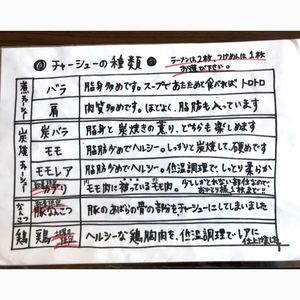 チャーシューの種類
ラーメンは2枚、つけめんは1枚
お選び下さい。
煮チャーシュー
バラ 脂身多めです。スープであたためて食べれば、トロトロ
肩 肉質多めです。ほどよく、脂肪も入っています
炭焼チャーシュー
炭バラ 脂身と炭焼きの薫り、どちらも楽しめます
モモ 脂肪少なめでヘルシー。しっかりと炭焼して、硬めです
モモレア 脂肪少なめでヘルシー。低温調理で、しっとり柔らか
モモ肉に
モモ肉。
おひとり様1枚まで!!
なんこつ
豚なんこつ 豚のあばらの骨の部分もチャーシューにしてしまいました
鶏
鶏 ヘルシーな鶏胸肉を、低温調理でレアに
仕上げました